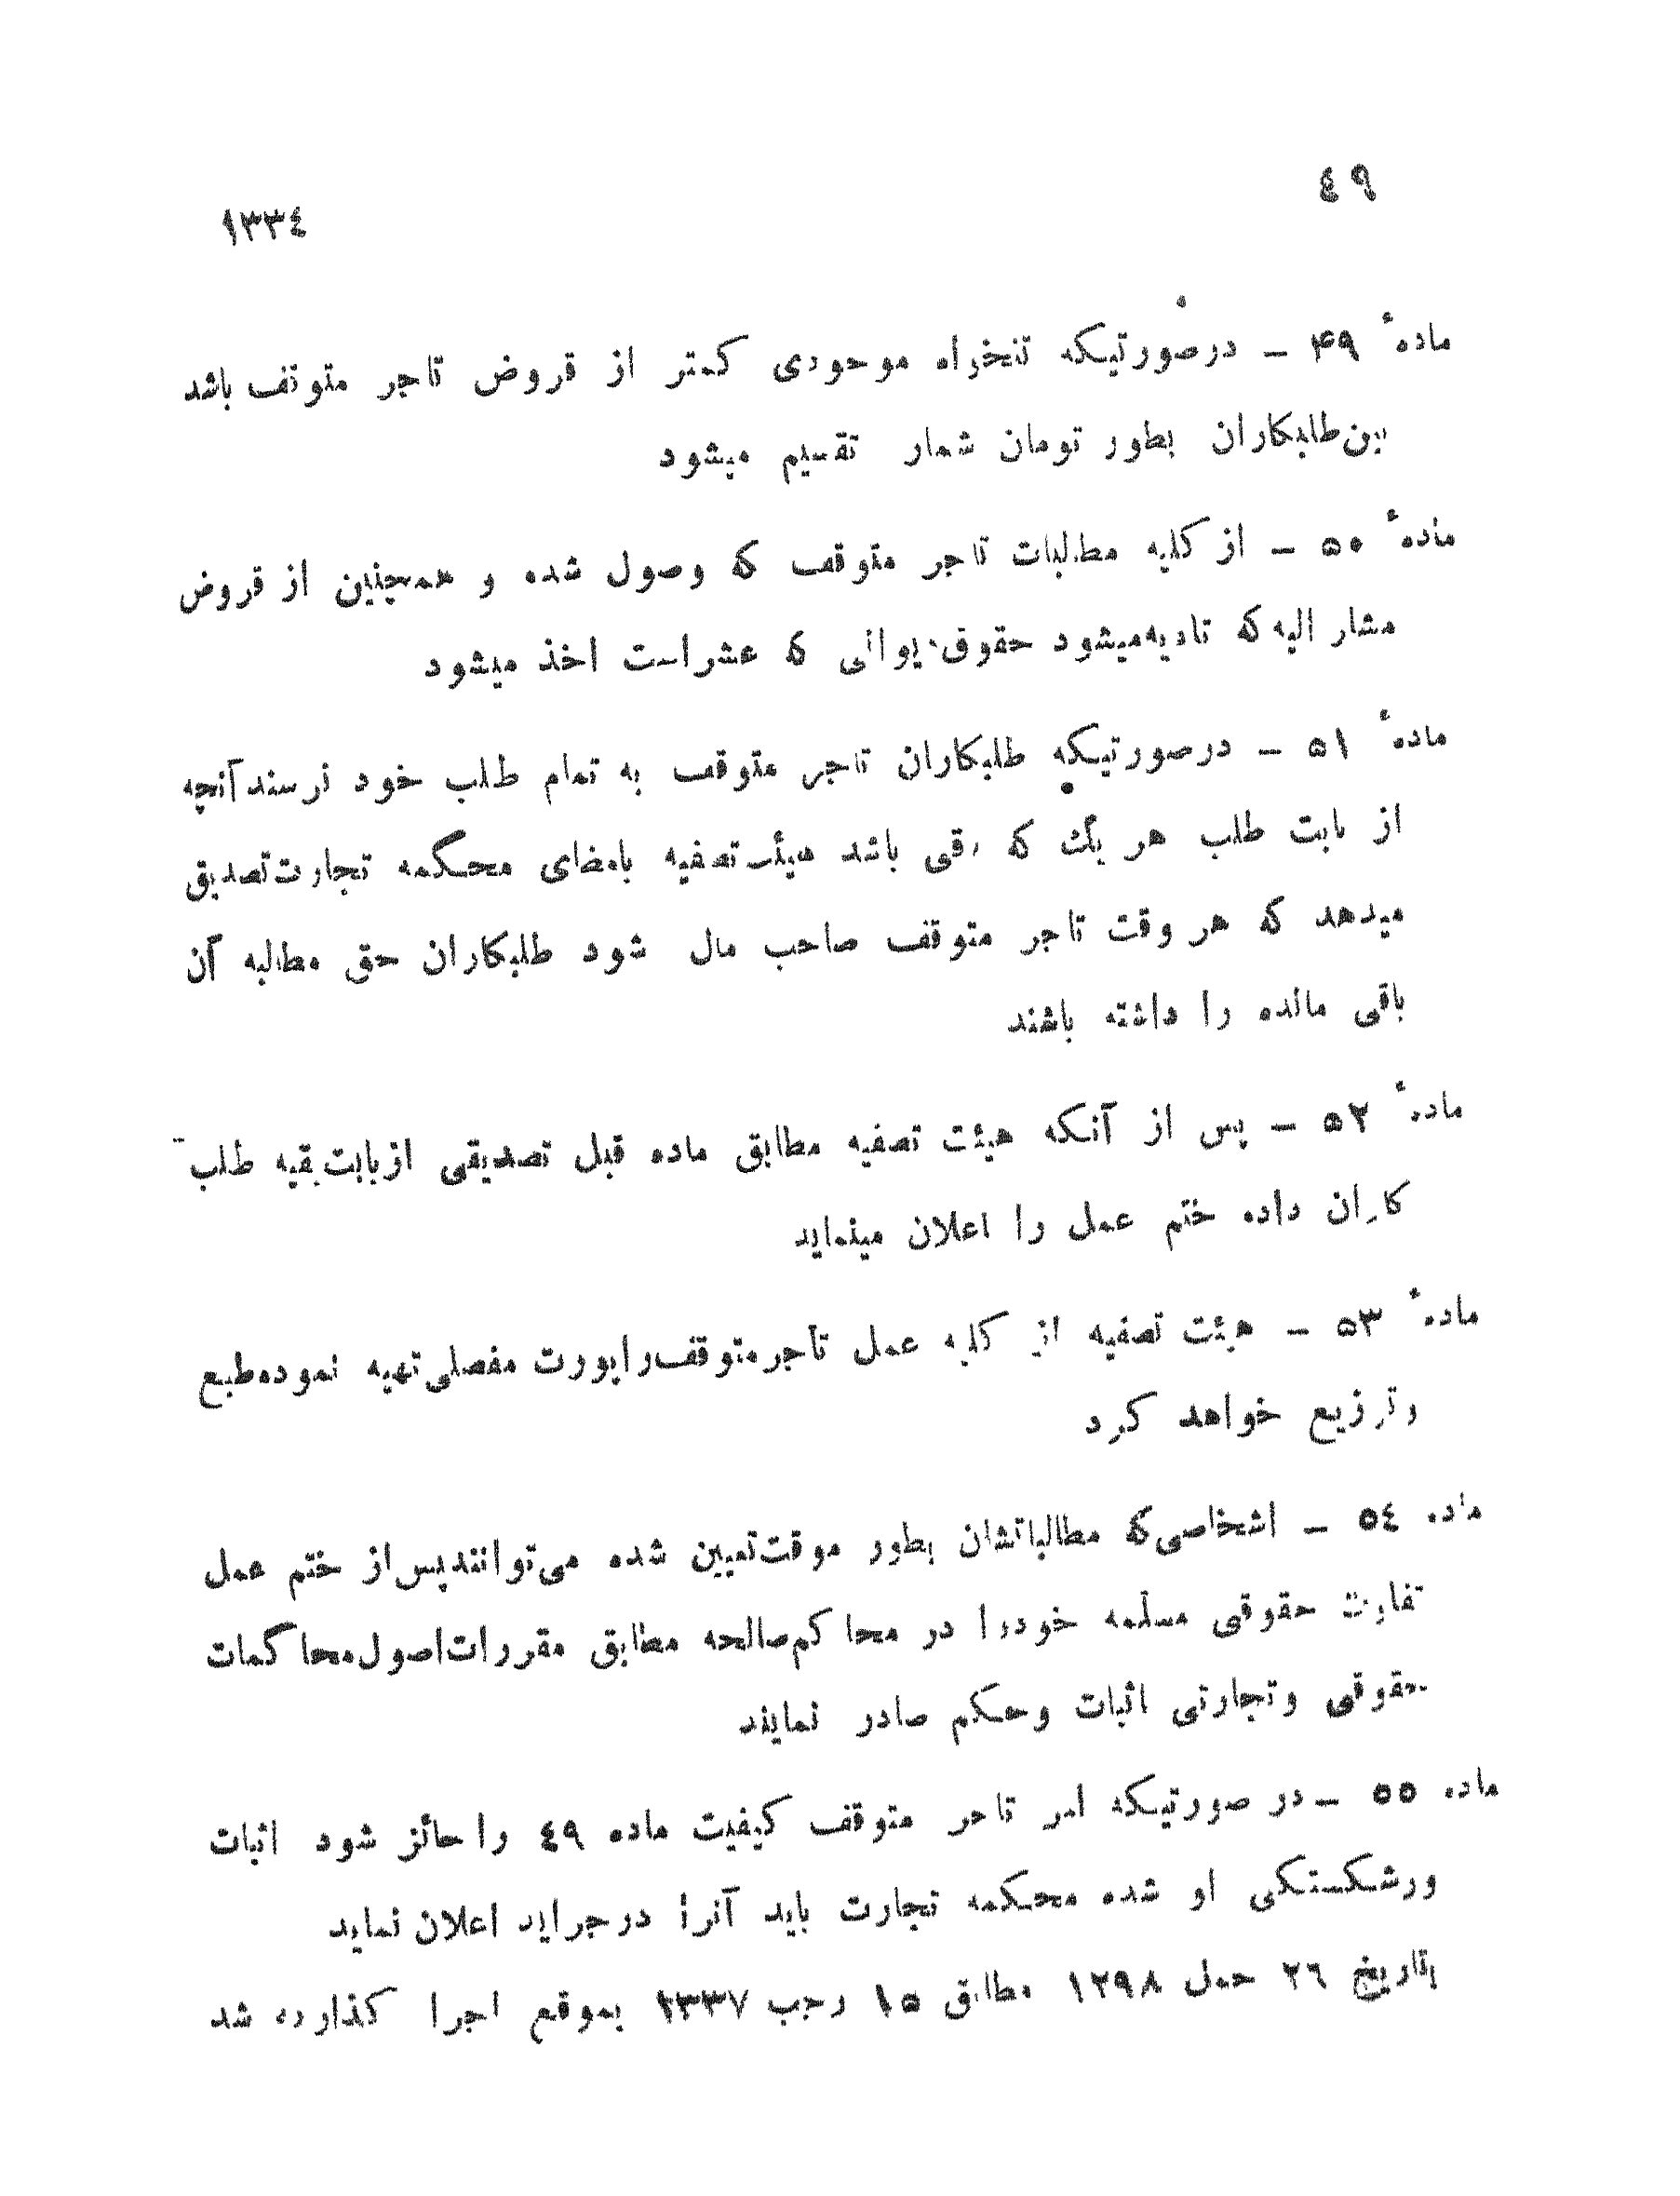 ٤٩
١٣٣٤
مادهٔ ۴۹ ــ درصورتیکه تنخواه موجودی کمتر از قروض تاجر متوقف باشد
بین طلبکاران بطور تومان شمار تقسیم میشود
مادهٔ ۵۰ ــ از کلیه مطالبات تاجر متوقف که وصول شده و همچنین از قروض
مشار الیه که تادیه میشود حقوق دیوانی که عشر است اخذ میشود
مادهٔ ۵۱ ــ درصورتیکه طلبکاران تاجر متوقف به تمام طلب خود نرسند آنچه
از بابت طلب هر یك که باقی باشد هیئت تصفیه بامضای محکمه تجارت تصدیق
میدهد که هر وقت تاجر متوقف صاحب مال شود طلبکاران حق مطالبه آن
باقی مانده را داشته باشند
مادهٔ ۵۲ ــ پس از آنکه هیئت تصفیه مطابق ماده قبل تصدیقی از بابت بقیه طلب
کاران داده ختم عمل را اعلان مینماید
مادهٔ ۵۳ ــ هیئت تصفیه از کلیه عمل تاجر متوقف راپورت مفصلی تهیه نموده طبع
وتوزیع خواهد کرد
ماده ٥٤ ــ اشخاصی که مطالباتشان بطور موقت تعیین شده می توانند پس از ختم عمل
تفاوت حقوقی مسلمه خود را در محاکم صالحه مطابق مقررات اصول محاکمات
حقوقی وتجارتی اثبات وحکم صادر نمایند
ماده ٥٥ ــ در صورتیکه امر تاجر متوقف کیفیت ماده ٤٩ را حائز شود اثبات
ورشکستکی او شده محکمه تجارت باید آنرا در جراید اعلان نماید
بتاریخ ٢٦ حمل ١٢٩٨ مطابق ١٥ رجب ١٣٣٧ بموقع اجرا کذارده شد